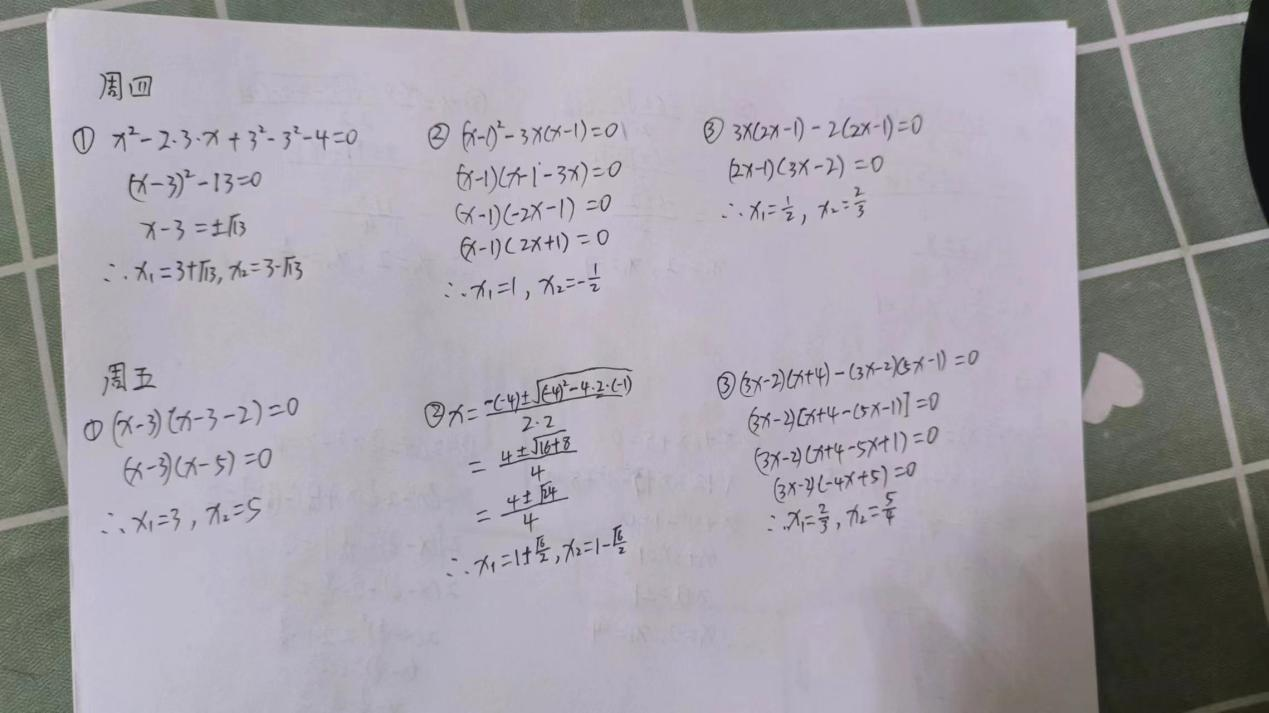 周四
① x²-2·3·x+3²-3²-4=0
(x-3)²-13=0
x-3=±√13
∴x₁=3+√13, x₂=3-√13
② (x-1)²-3x(x-1)=0
(x-1)(x-1-3x)=0
(x-1)(-2x-1)=0
(x-1)(2x+1)=0
∴x₁=1, x₂=-1/2
③ 3x(2x-1)-2(2x-1)=0
(2x-1)(3x-2)=0
∴x₁=1/2, x₂=2/3
周五
① (x-3)(x-3-2)=0
(x-3)(x-5)=0
∴x₁=3, x₂=5
② x=(-(-4)±√((-4)²-4·2·(-1)))/(2·2)
=(4±√(16+8))/4
=(4±√24)/4
∴x₁=1±√6/2, x₂=1-√6/2
③ (3x-2)(x+4)-(3x-2)(5x-1)=0
(3x-2)[x+4-(5x-1)]=0
(3x-2)(x+4-5x+1)=0
(3x-2)(-4x+5)=0
∴x₁=2/3, x₂=5/4